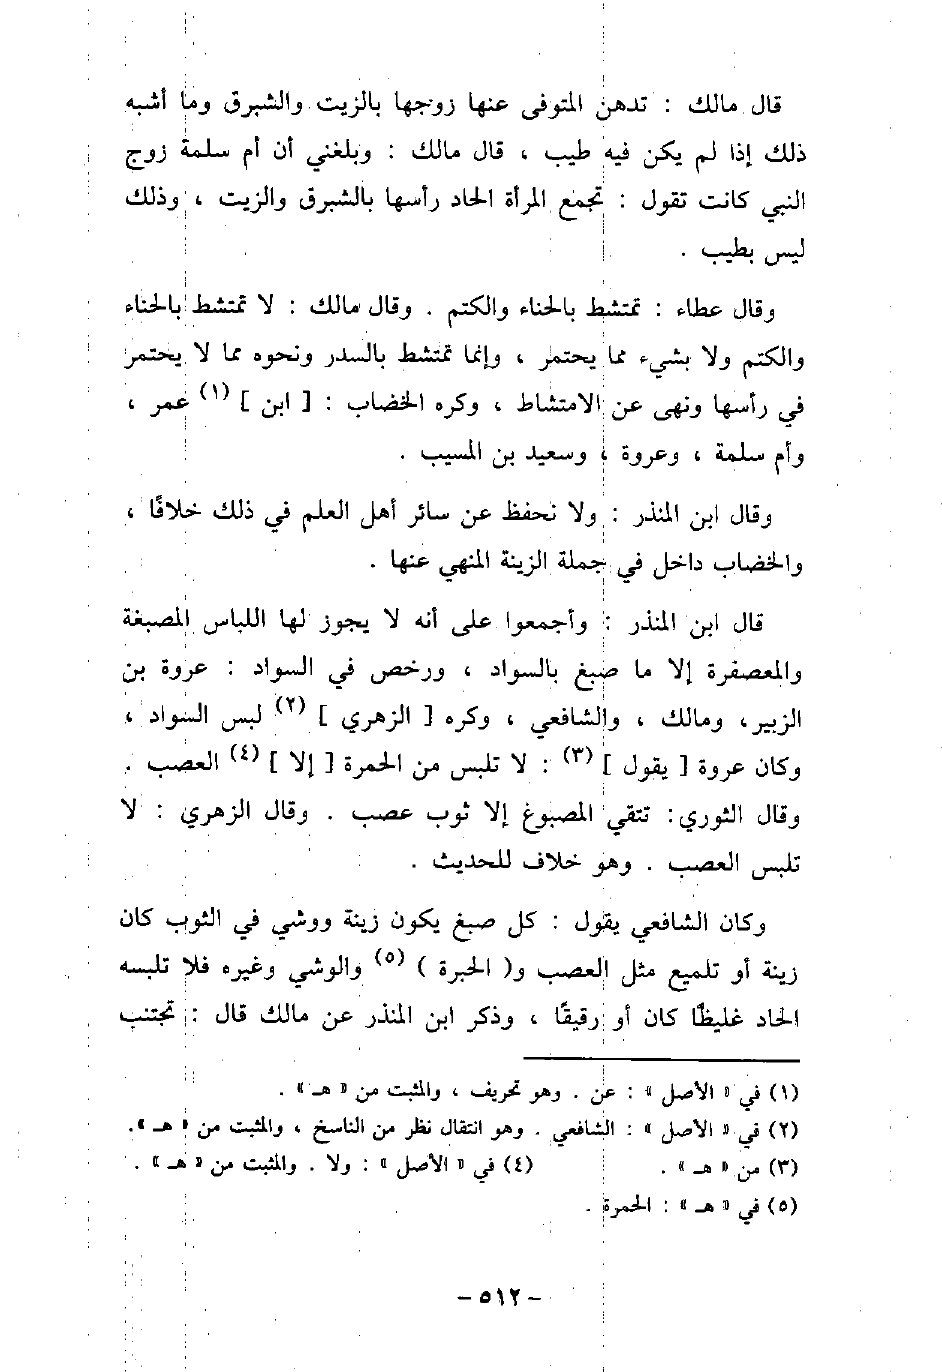 قال مالك : تدهن المتوفى عنها زوجها بالزيت والشبرق وما أشبه
ذلك إذا لم يكن فيه طيب ، قال مالك : وبلغني أن أم سلمة زوج
النبي كانت تقول : تجمع المرأة الحاد رأسها بالشبرق والزيت ، وذلك
ليس بطيب .
وقال عطاء : تمتشط بالحناء والكتم . وقال مالك : لا تمتشط بالحناء
والكتم ولا بشيء مما يختمر ، وإنما تمتشط بالسدر ونحوه مما لا يختمر
في رأسها ونهى عن الامتشاط ، وكره الخضاب : [ ابن ] (١) عمر ،
وأم سلمة ، وعروة ، وسعيد بن المسيب .
وقال ابن المنذر : ولا نحفظ عن سائر أهل العلم في ذلك خلافًا ،
والخضاب داخل في جملة الزينة المنهي عنها .
قال ابن المنذر : وأجمعوا على أنه لا يجوز لها اللباس المصبغة
والمعصفرة إلا ما صبغ بالسواد ، ورخص في السواد : عروة بن
الزبير، ومالك ، والشافعي ، وكره [ الزهري ] (٢) لبس السواد ،
وكان عروة [ يقول ] (٣) : لا تلبس من الحمرة [ إلا ] (٤) العصب .
وقال الثوري: تتقي المصبوغ إلا ثوب عصب . وقال الزهري : لا
تلبس العصب . وهو خلاف للحديث .
وكان الشافعي يقول : كل صبغ يكون زينة ووشي في الثوب كان
زينة أو تلميع مثل العصب و( الحبرة ) (٥) والوشي وغيره فلا تلبسه
الحاد غليظًا كان أو رقيقًا ، وذكر ابن المنذر عن مالك قال : تجتنب
(١) في « الأصل » : عن . وهو تحريف ، والمثبت من « هـ » .
(٢) في « الأصل » : الشافعي . وهو انتقال نظر من الناسخ ، والمثبت من « هـ ».
(٣) من « هـ » . (٤) في « الأصل » : ولا . والمثبت من « هـ » .
(٥) في « هـ » : الحمرة .
- ٥١٢ -